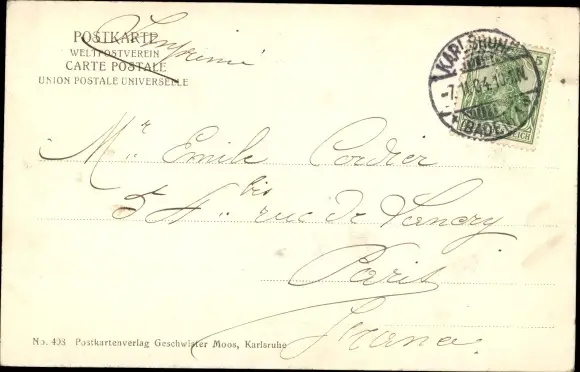 POSTKARTE
WELTPOSTVEREIN
CARTE POSTALE
UNION POSTALE UNIVERSELLE
Imprimé
KARLSRUHE
(BADEN)
5
REICH
Mr. Emile Cordier
bis
rue de Lancry
Paris
No. 403 Postkartenverlag Geschwister Moos, Karlsruhe